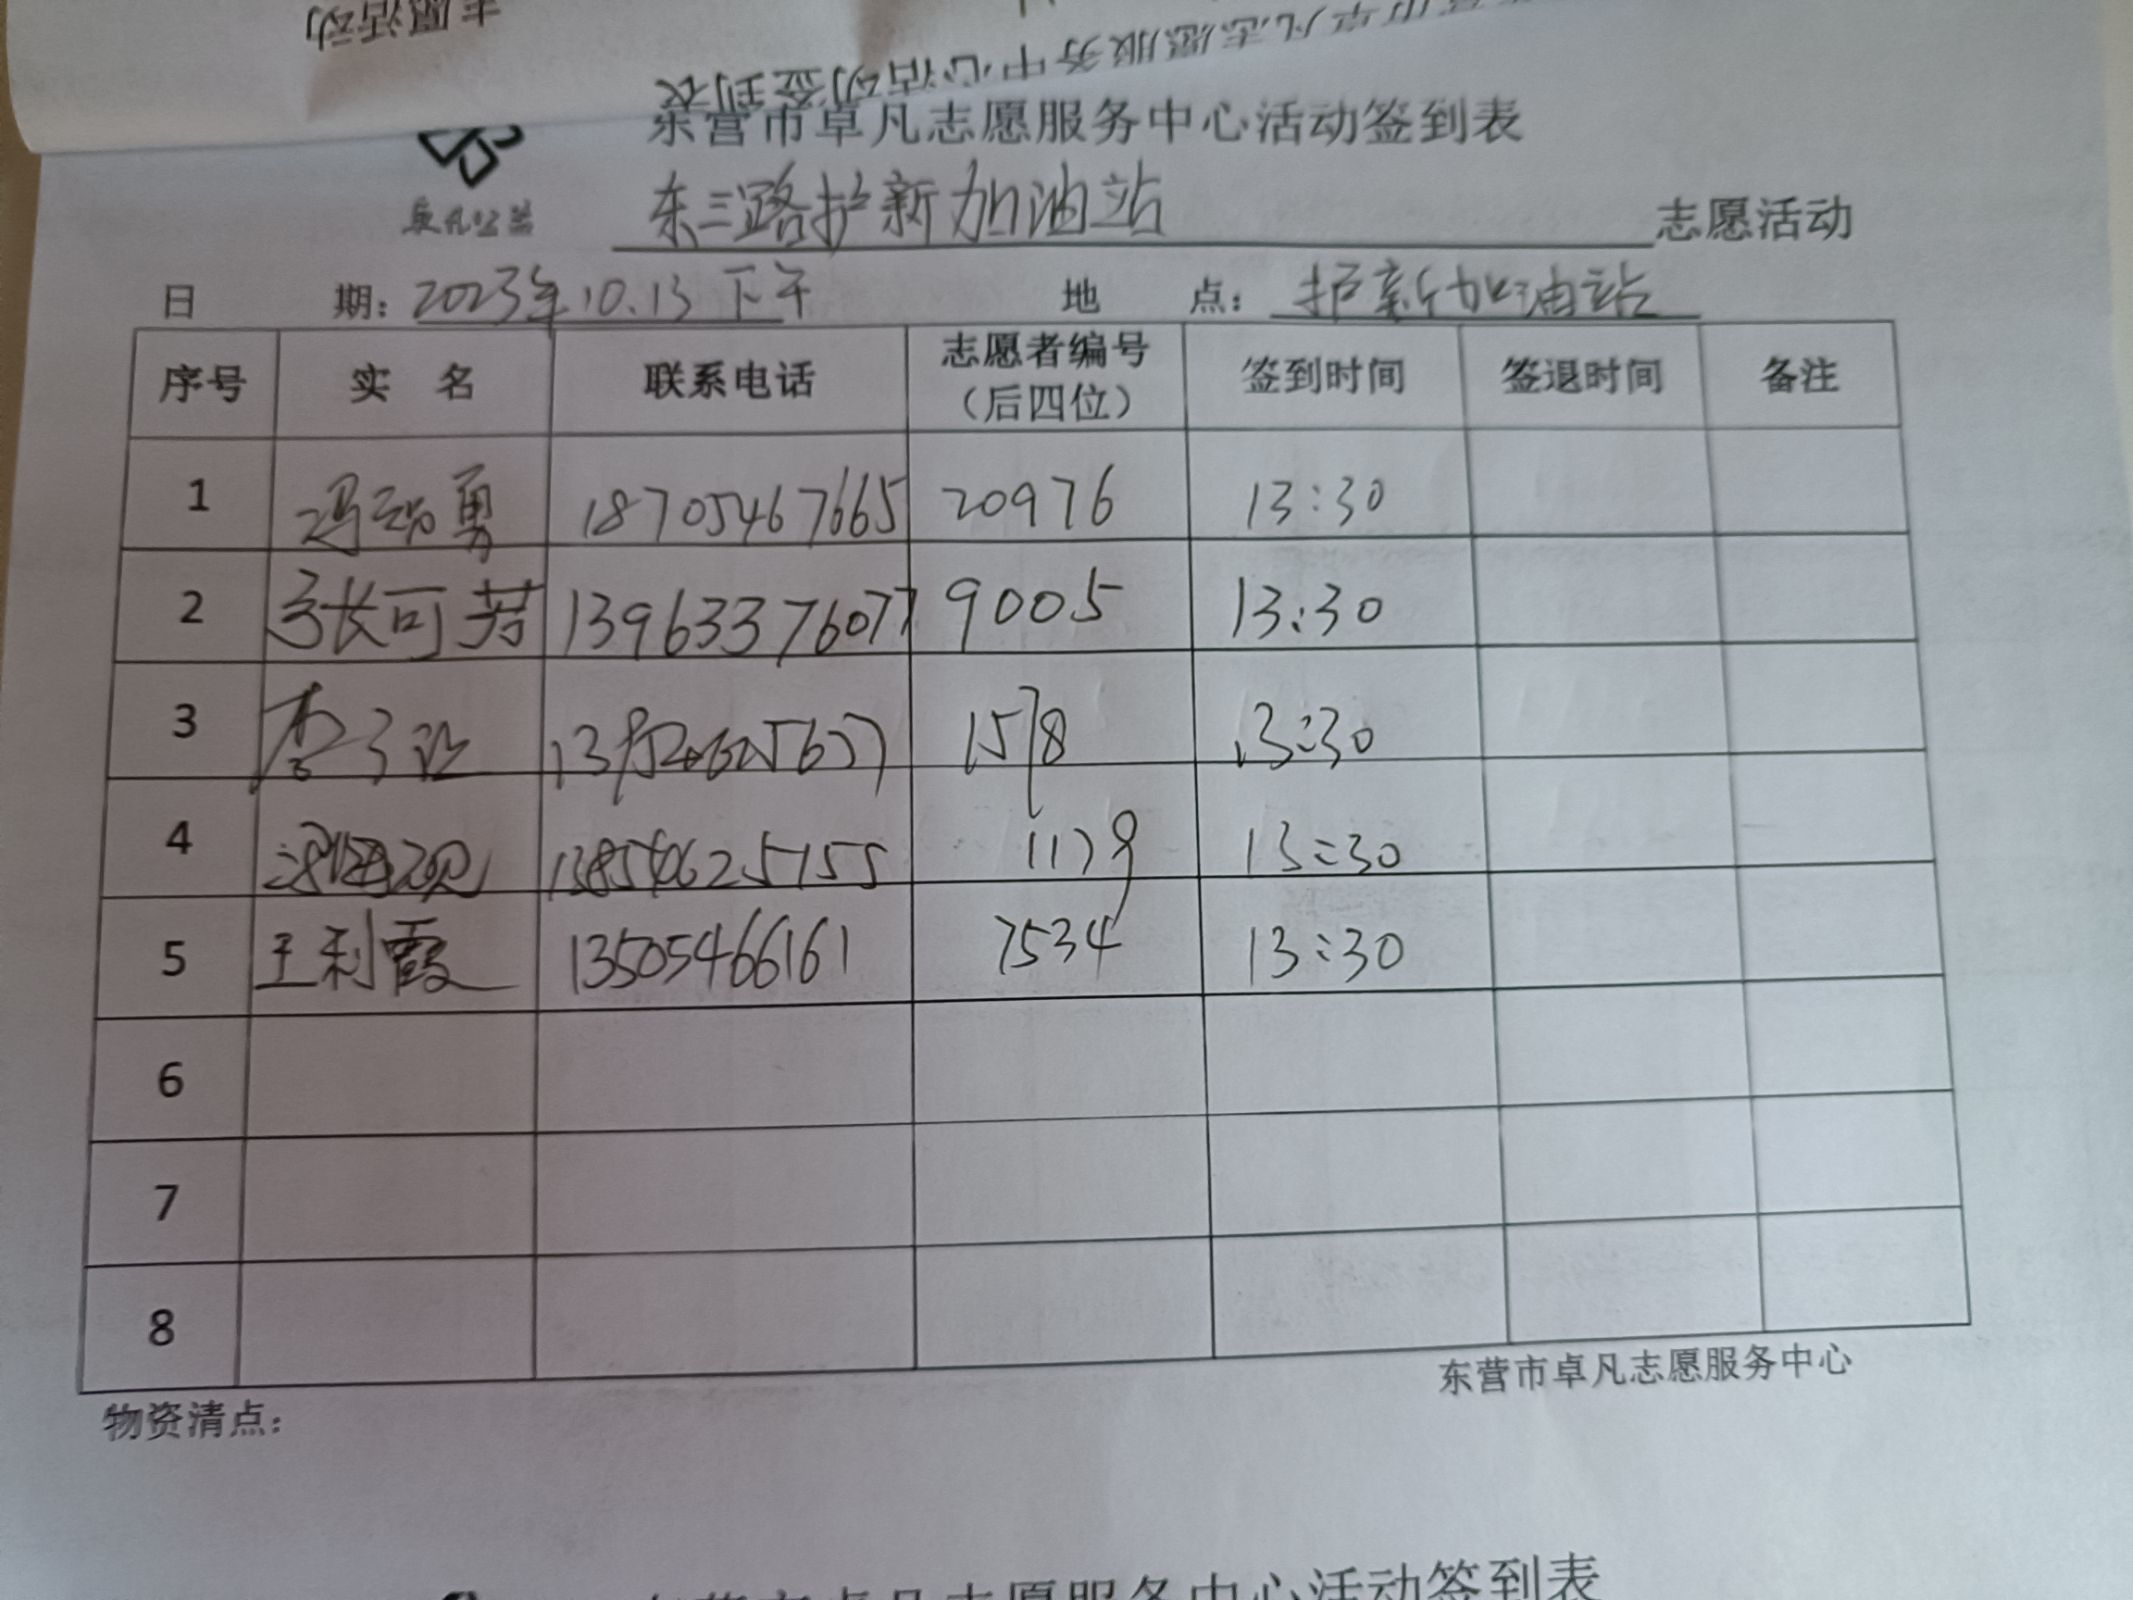 志愿活动
东营市卓凡志愿服务中心活动签到表
东营市卓凡志愿服务中心活动签到表
卓凡公益
东三路护新加油站 志愿活动
日 期: 2023年10.13下午 地 点: 护新加油站
序号 实 名 联系电话 志愿者编号（后四位） 签到时间 签退时间 备注
1 冯 勇 18705467665 20976 13:30
2 张可芳 13963376077 9005 13:30
3 李 1578 13:30
4 1179 13:30
5 王利霞 13505466161 7534 13:30
6
7
8
东营市卓凡志愿服务中心
物资清点:
东营市卓凡志愿服务中心活动签到表